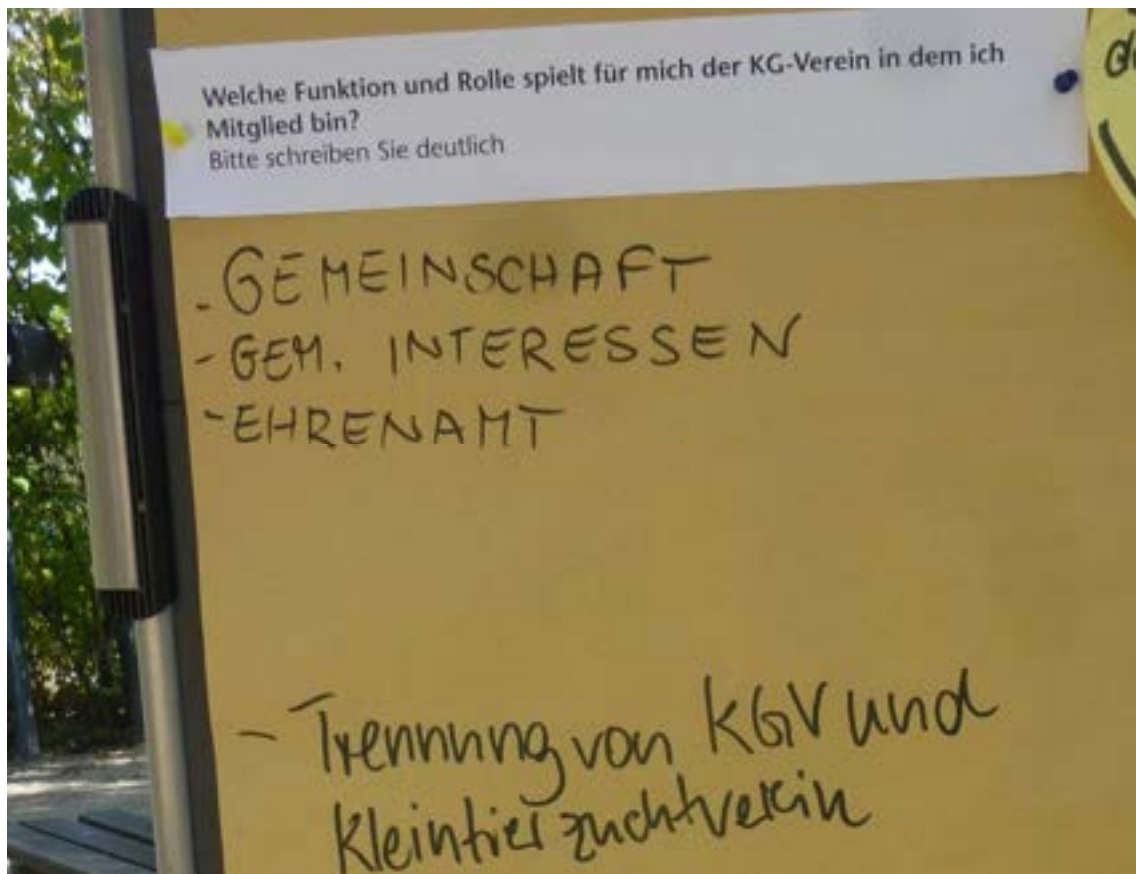 Welche Funktion und Rolle spielt für mich der KG-Verein in dem ich
Mitglied bin?
Bitte schreiben Sie deutlich
- GEMEINSCHAFT
- GEM. INTERESSEN
- EHRENAMT
- Trennung von KGV und
Kleintierzuchtverein